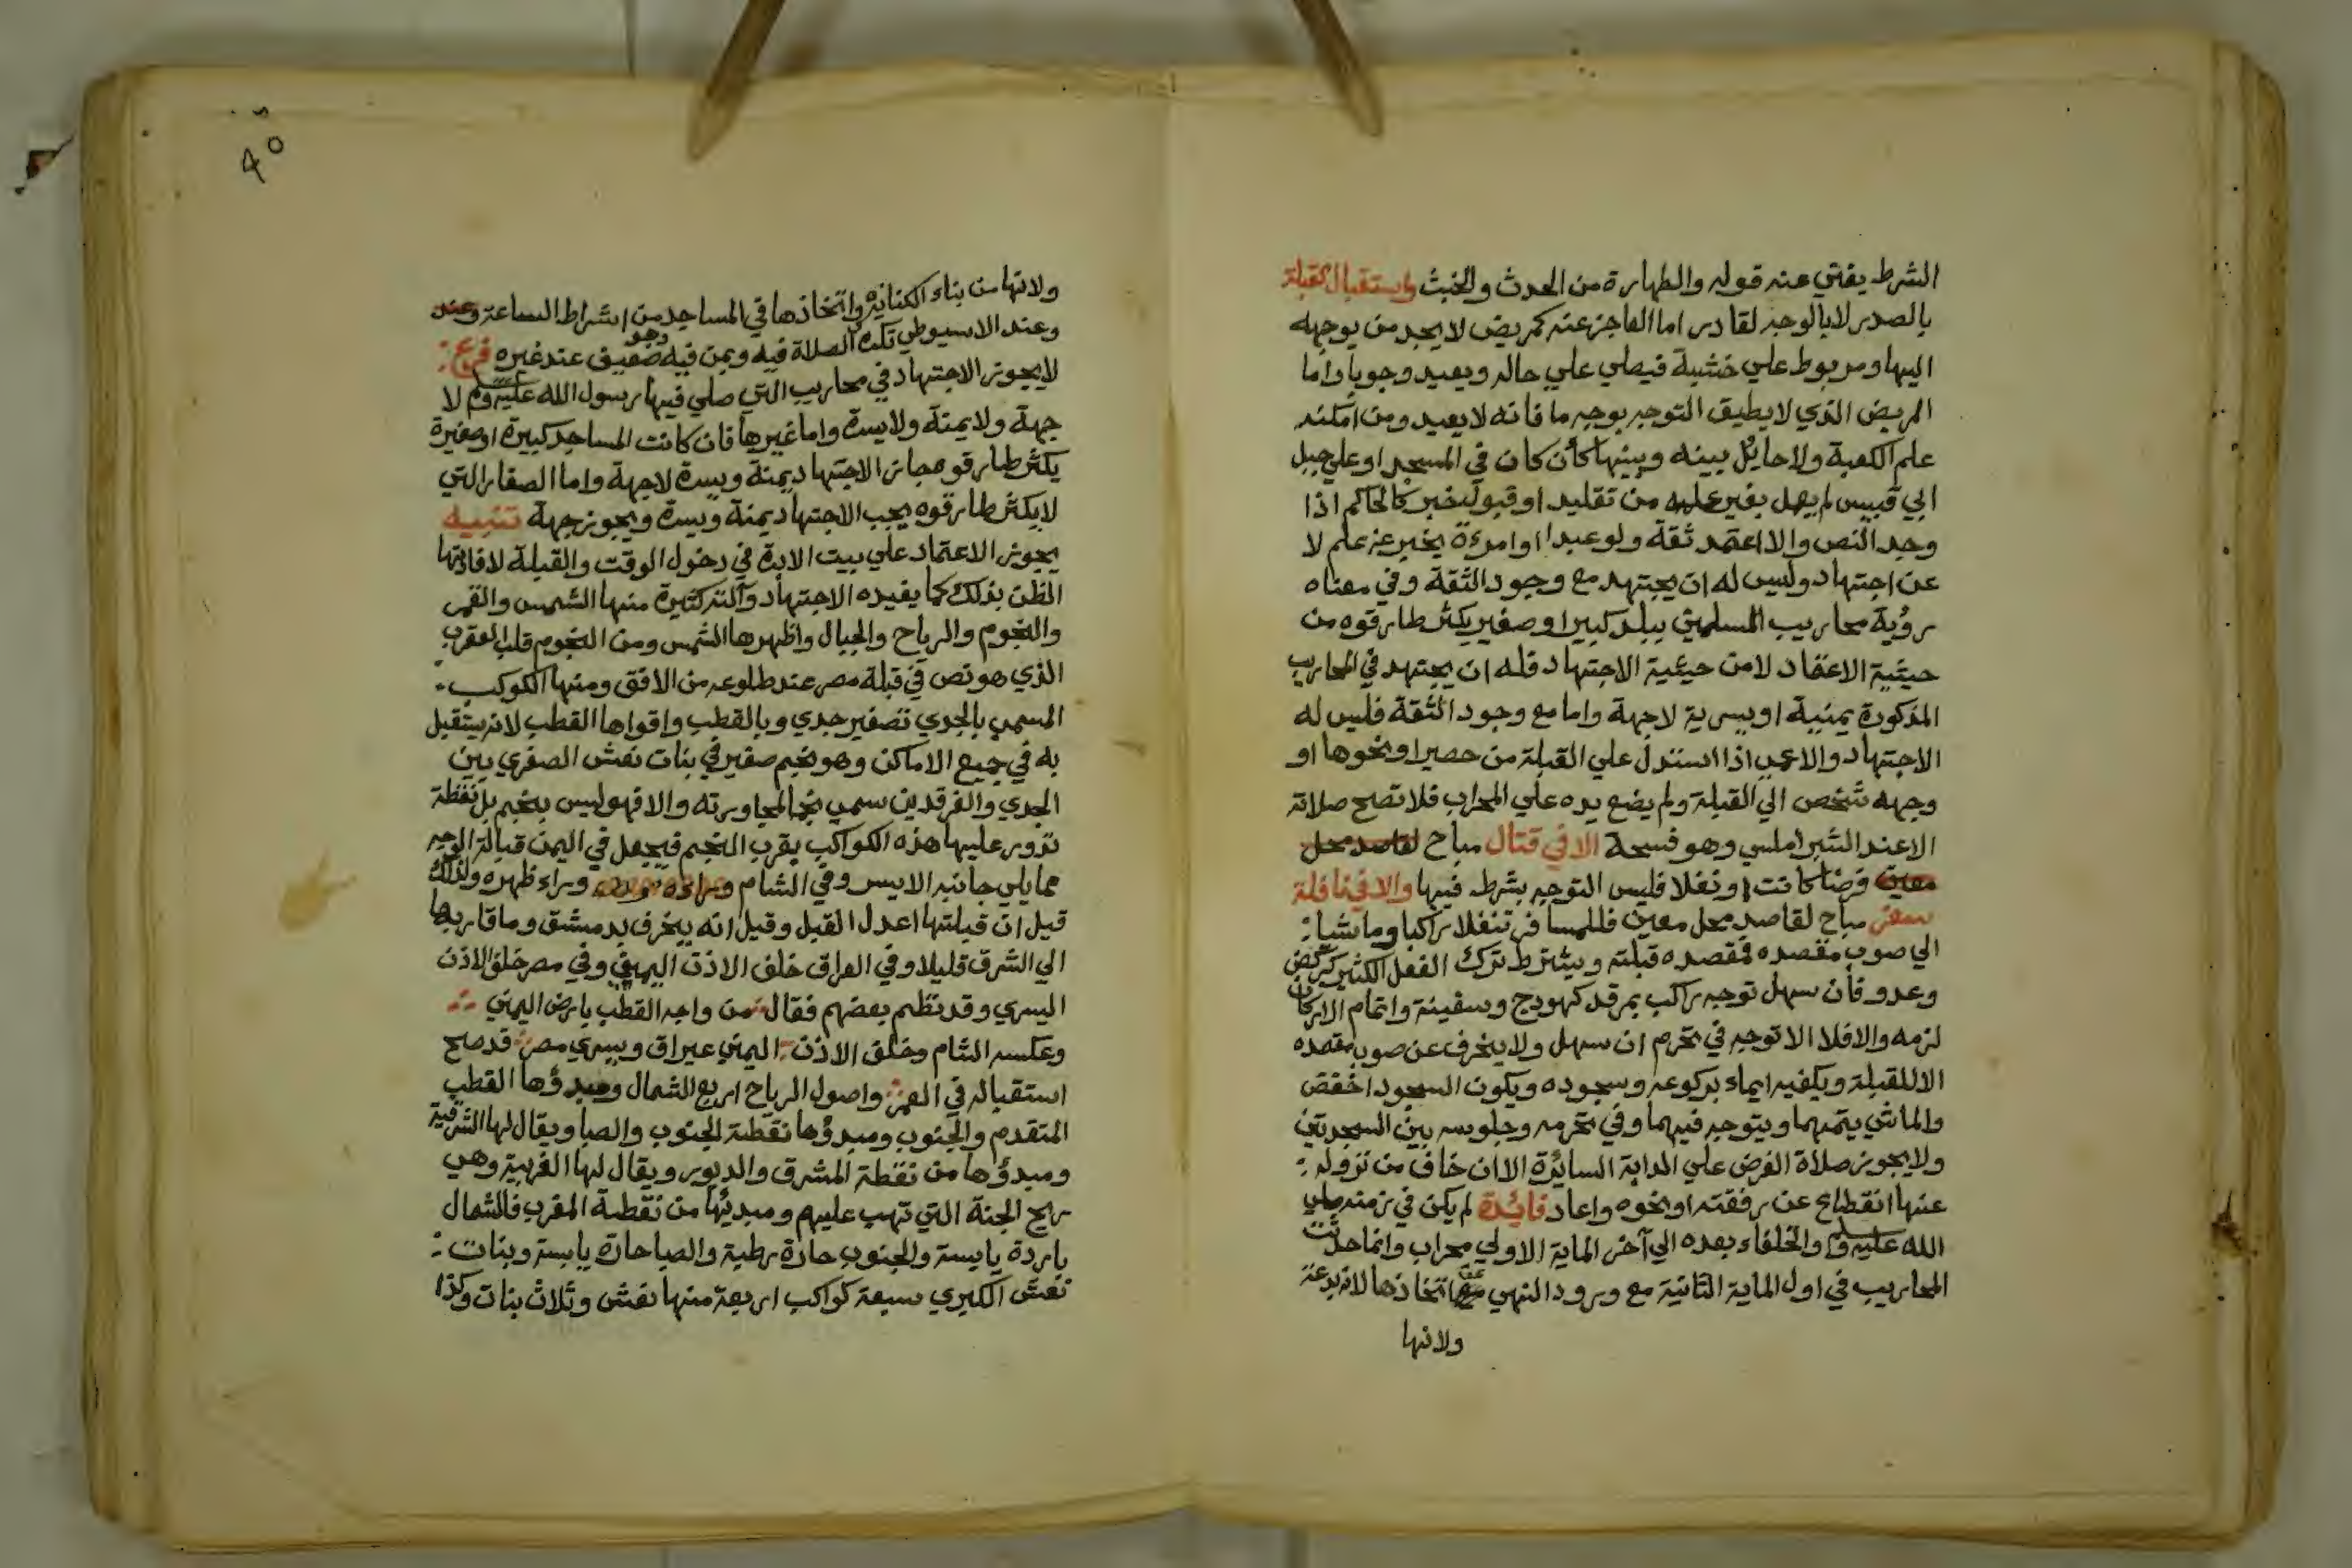 الشرط يغني عنه قوله والطهارة من الحدث والخبث واستقبال القبلة
بالصدر لا بالوجه لقادر اما العاجز عنه كمريض لا يجد من يوجهه
اليها ومربوط علي خشبة فيصلي علي حاله ويعيد وجوبا واما
المريض الذي لا يطيق التوجه بوجه ما فانه لا يعيد ومن امكنه
علم الكعبة ولا حايل بينه وبينها كأن كان في المسجد او علي جبل
ابي قبيس لم يعمل بغير علمه من تقليد او قبول خبر كالحاكم اذا
وجد النص والا اعتمد ثقة ولو عبدا او امرءة يخبر عن علم لا
عن اجتهاد وليس له ان يجتهد مع وجود الثقة وفي معناه
رؤية محاريب المسلمين ببلد كبير او صغير يكثر طارقوه من
حيثية الاعتماد لا من حيثية الاجتهاد فله ان يجتهد في المحاريب
المذكورة يمنية او يسرية لا جهة واما مع وجود الثقة فليس له
الاجتهاد والاعمي اذا استدل علي القبلة من حصير او نحوها او
وجهه شخص الي القبلة ولم يضع يده علي المحراب فلا تصح صلاته
الا عند الشبراملسي وهو فسحة الا في قتال مباح لقاصد محل
معين فرضا كانت او نفلا فليس التوجه بشرط فيها والا في نافلة
سفر مباح لقاصد محل معين فللمسافر تنفلا راكبا وماشيا :
الي صوب مقصده فمقصده قبلته ويشترط ترك الفعل الكثير كركض
وعدو فأن سهل توجه راكب بمرقد كهودج وسفينة واتمام الاركان
لزمه والا فلا الا توجه في تحرم ان سهل ولا ينحرف عن صوب مقصده
الا للقبلة ويكفيه ايماء بركوعه وسجوده ويكون السجود اخفض
والماشي يتمهما ويتوجه فيهما وفي تحرمه وجلوسه بين السجدتين
ولا يجوز صلاة الفرض علي الدابة السايرة الا ان خاف من نزوله :
عنها انقطاع عن رفقته او نحوه واعاد فائدة لم يكن في زمنه صلي
الله عليه وسلم والخلفاء بعده الي آخر الماية الاولي محراب وانما حدثت
المحاريب في اول الماية الثانية مع ورود النهي عن اتخاذها لانه بدعة
ولانها
40
ولانها من بناء الكنايس واتخاذها في المساجد من اشراط الساعة وعند
وعند الاسيوطي تكره الصلاة فيه وبمن فيه وهو ضعيف عند غيره فرع :
لا يجوز الاجتهاد في محاريب التي صلي فيها رسول الله عليه وسلم لا
جهة ولا يمنة ولا يسرة واما غيرها فان كانت المساجد كبيرة او صغيرة
يكثر طارقوه جاز الاجتهاد يمنة ويسرة لا جهة واما الصغار التي
لا يكثر طارقوه يجب الاجتهاد يمنة ويسرة ويجوز جهة تنبيه
يجوز الاعتماد علي بيت الابرة في دخول الوقت والقبلة لافادتها
الظن بذلك كما يفيده الاجتهاد وآلته كثيرة منها الشمس والقمر
والنجوم والرياح والجبال واظهرها الشمس ومن النجوم قلب العقرب
الذي هو نص في قبلة مصر عند طلوعه من الافق ومنها الكوكب
المسمي بالجدي تصغير جدي وبالقطب واقواها القطب لانه يستقبل
به في جميع الاماكن وهو نجم صغير في بنات نعش الصغري بين
الجدي والفرقدين سمي نجما لمجاورته والا فهو ليس بنجم بل نقطة
تدور عليها هذه الكواكب بقرب النجم فيجعل في اليمن قبالة الوجه
مما يلي جانبه الايسر وفي الشام وراءه وراء ظهره ولذلك
قيل ان قبلتها اعدل القبل وقيل انه ينحرف بدمشق وما قاربها
الي الشرق قليلا وفي العراق خلف الاذن اليمني وفي مصر خلف الاذن
اليسري وقد نظم بعضهم فقال من واجه القطب بارض اليمن
وعكسه الشام وخلف الاذن اليمني عيراق ويسري مصر قد صح
استقباله في العمر واصول الرياح اربع الشمال ومبدؤها القطب
المتقدم والجنوب ومبدؤها نقطة الجنوب والصبا ويقال لها الشرقية
ومبدؤها من نقطة المشرق والدبور ويقال لها الغربية وهي
ريح الجنة التي تهب عليهم ومبديها من نقطة المغرب فالشمال
باردة يابسة والجنوب حارة رطبة والصبا حارة يابسة وبنات :
نعش الكبري سبعة كواكب اربعة منها نعش وثلاث بنات وكذا